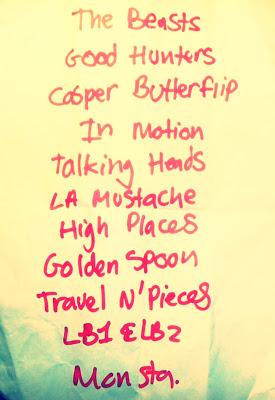 The Beasts
Good Hunters
Casper Butterflip
In Motion
Talking Heads
LA Mustache
High Places
Golden Spoon
Travel N' Pieces
LB1 & LB2
Mon sta.